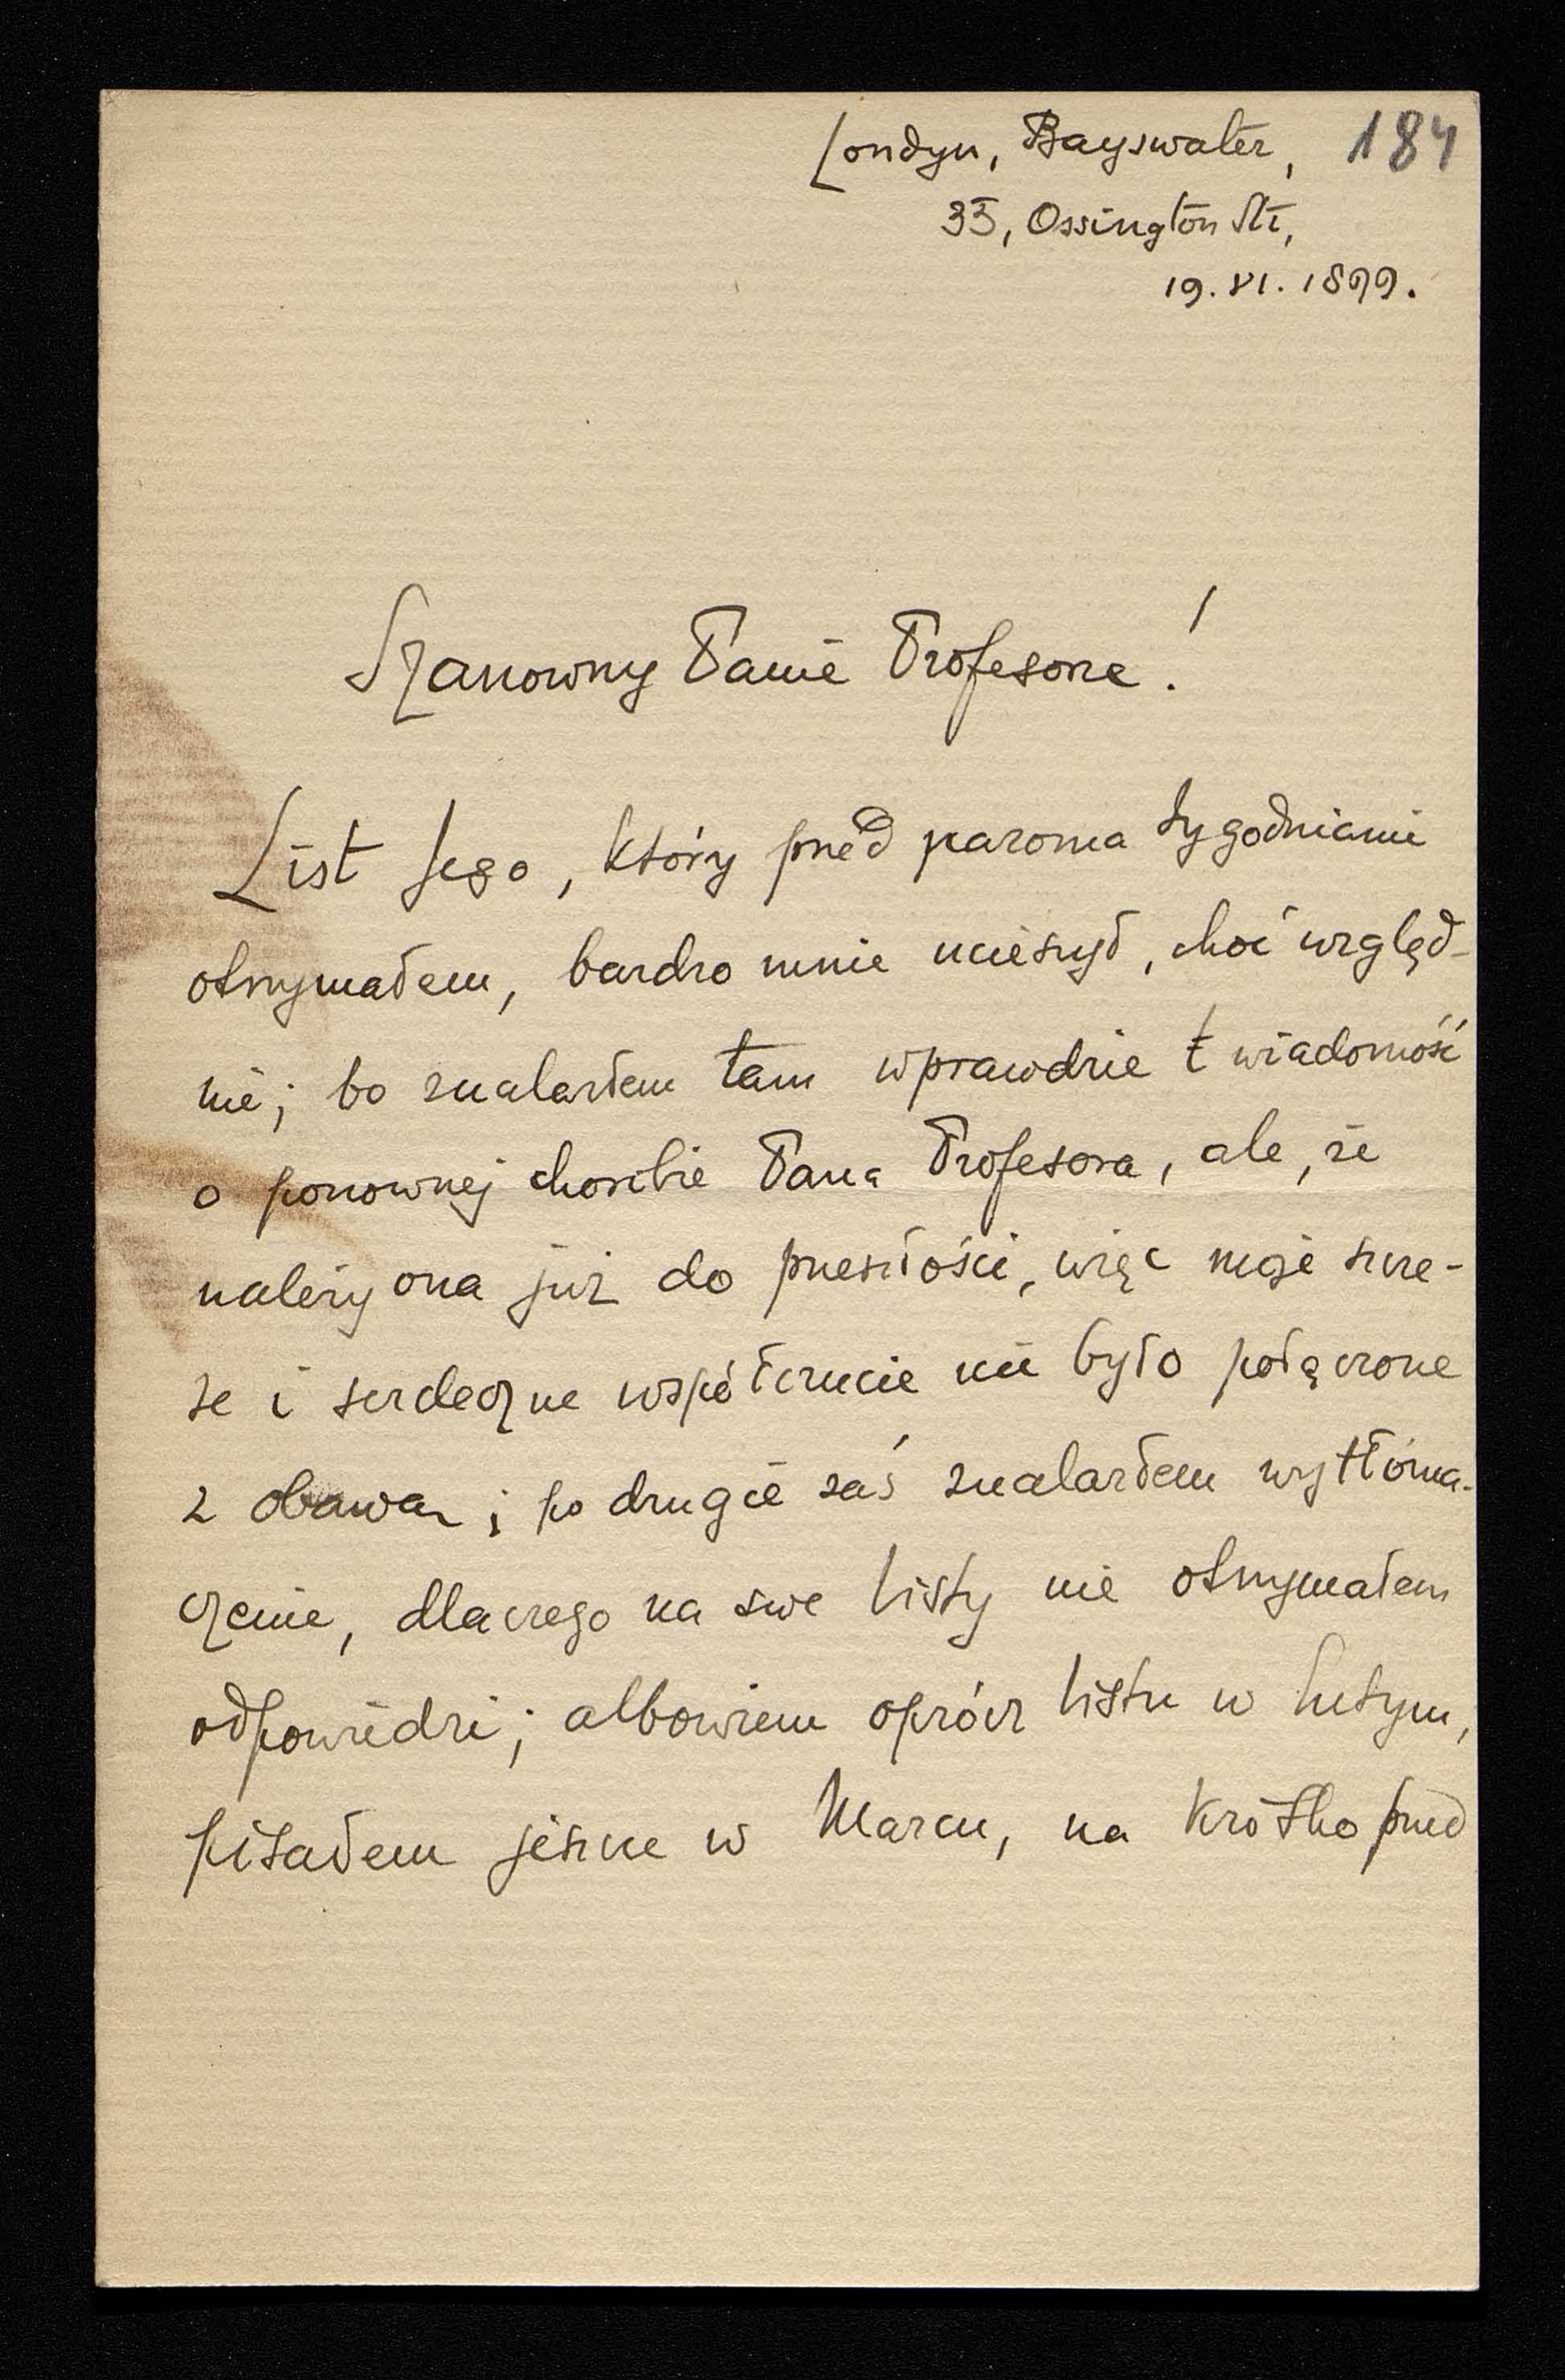 Londyn, Bayswater, 184
33, Ossington Str,
19. VI. 1899.
Szanowny Panie Profesorze!
List Jego, który przed paroma tygodniami
otrzymałem, bardzo mnie ucieszył, choć względ-
nie; bo znalazłem tam wprawdzie wiadomość
o ponownej chorobie Pana Profesora, ale, że
należy ona już do przeszłości, więc moje szcze-
re i serdeczne współczucie nie było połączone
z obawą; po drugie zaś znalazłem wytłóma-
czenie, dlaczego na swe listy nie otrzymałem
odpowiedzi; albowiem oprócz listu w lutym,
pisałem jeszcze w Marcu, na krótko przed